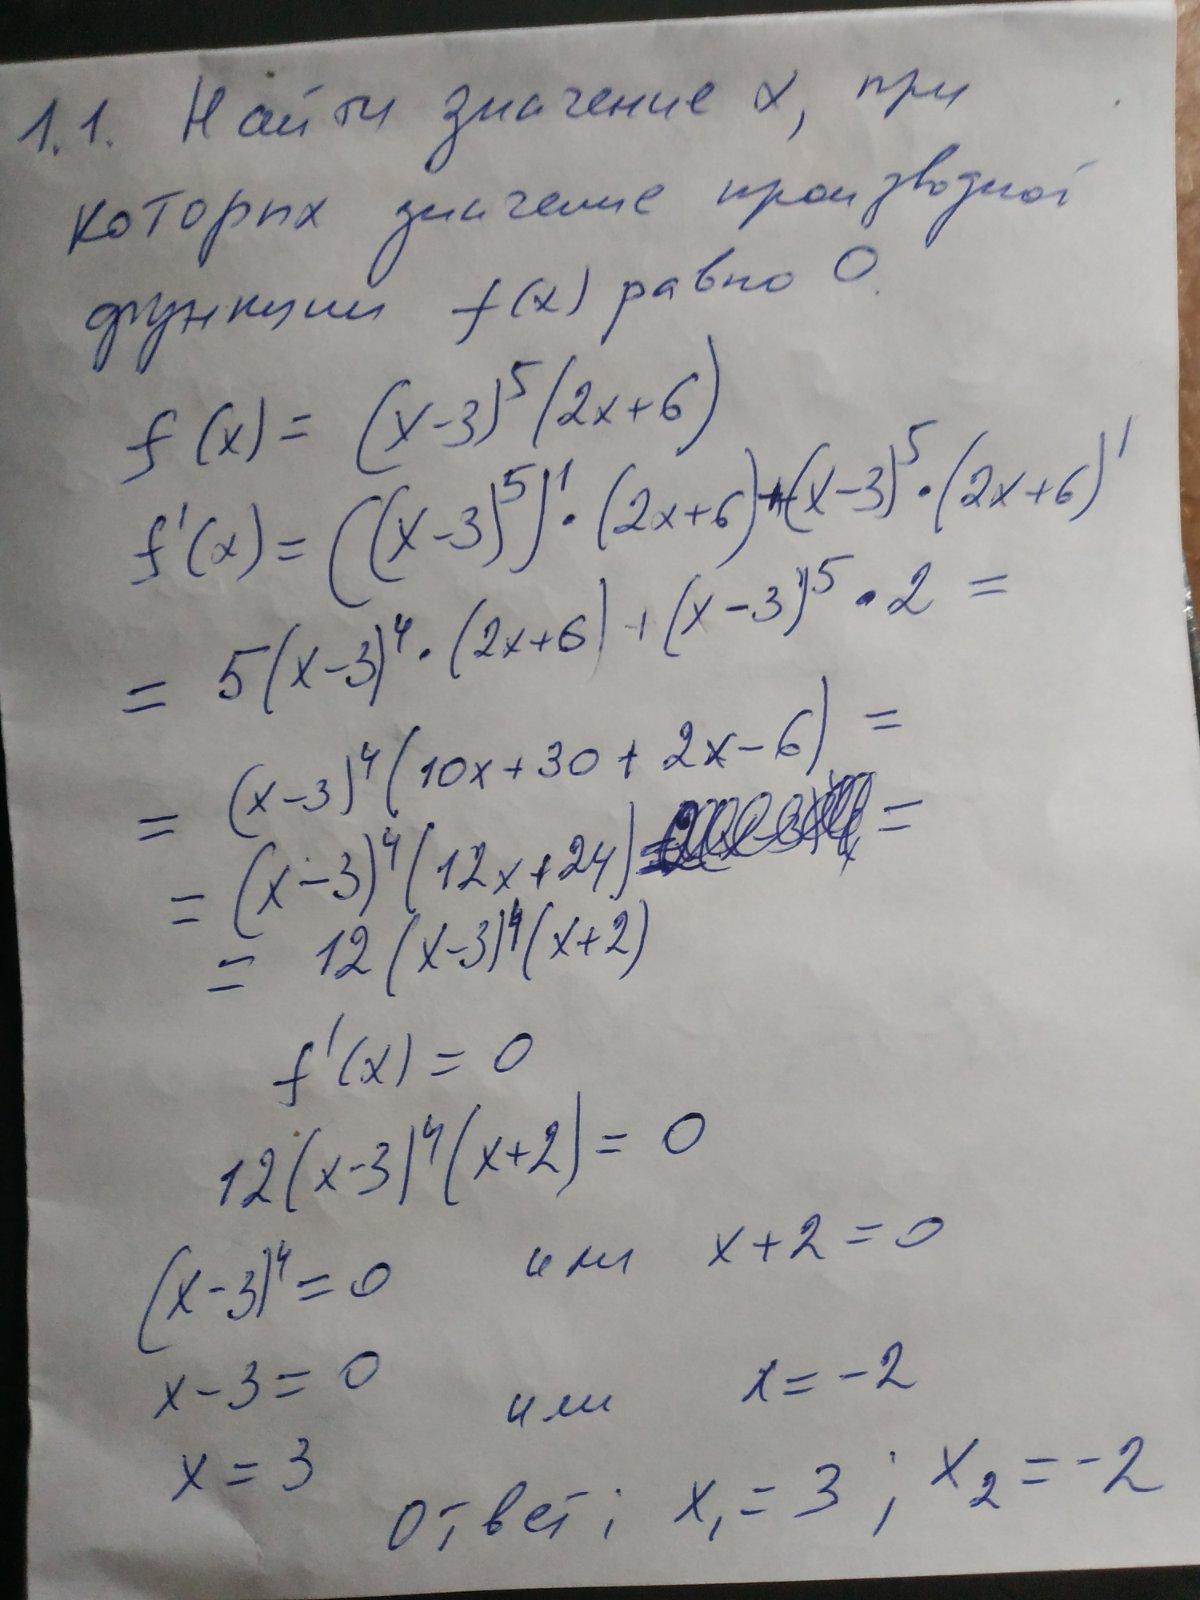 1.1. Найти значение x, при
которых значение производной
функции f(x) равно 0.
f(x) = (x-3)^5(2x+6)
f'(x) = ((x-3)^5)'·(2x+6)+(x-3)^5·(2x+6)'
= 5(x-3)^4·(2x+6)+(x-3)^5·2 =
= (x-3)^4(10x+30+2x-6) =
= (x-3)^4(12x+24) =
= 12(x-3)^4(x+2)
f'(x) = 0
12(x-3)^4(x+2) = 0
(x-3)^4 = 0 или x+2 = 0
x-3 = 0 или x = -2
x = 3
Ответ: x₁ = 3; x₂ = -2